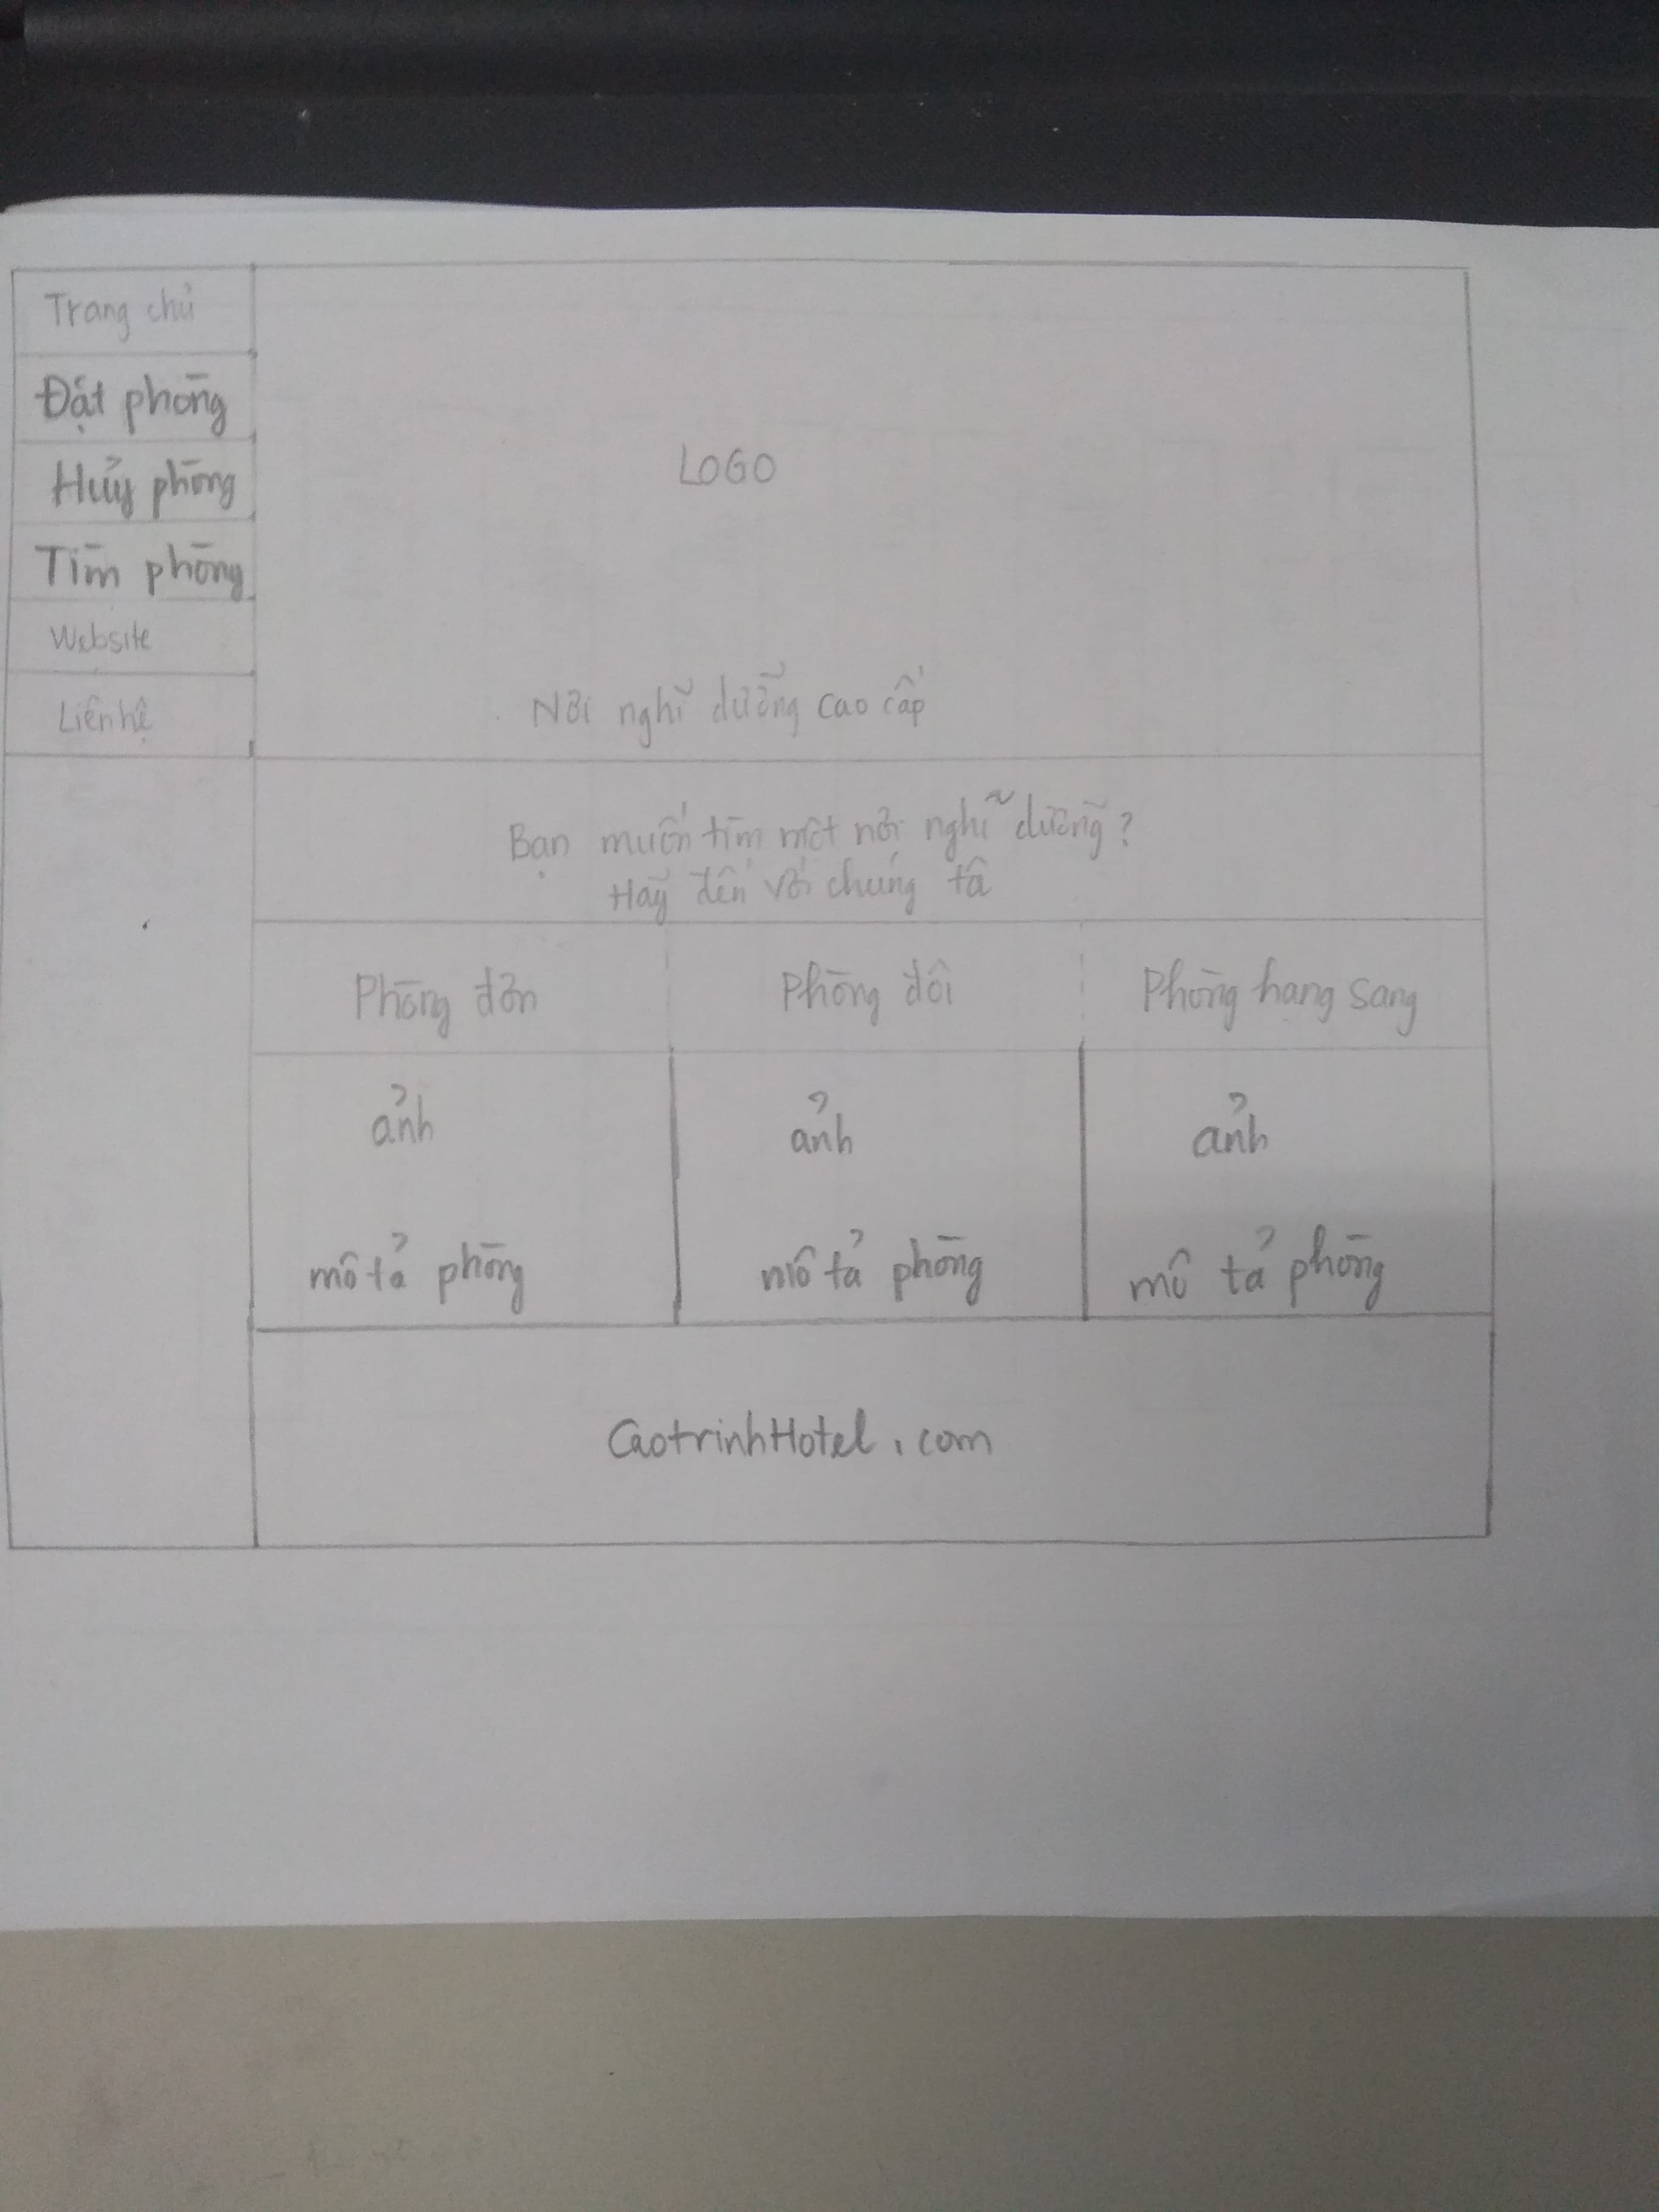 Trang chủ
Đặt phòng
Hủy phòng
Tìm phòng
Website
Liên hệ
LOGO
Nơi nghĩ dưỡng cao cấp
Bạn muốn tìm một nơi nghĩ dưỡng?
Hãy đến với chúng ta
Phòng đơn
Phòng đôi
Phòng hạng sang
ảnh
ảnh
ảnh
mô tả phòng
mô tả phòng
mô tả phòng
CaotrinhHotel.com